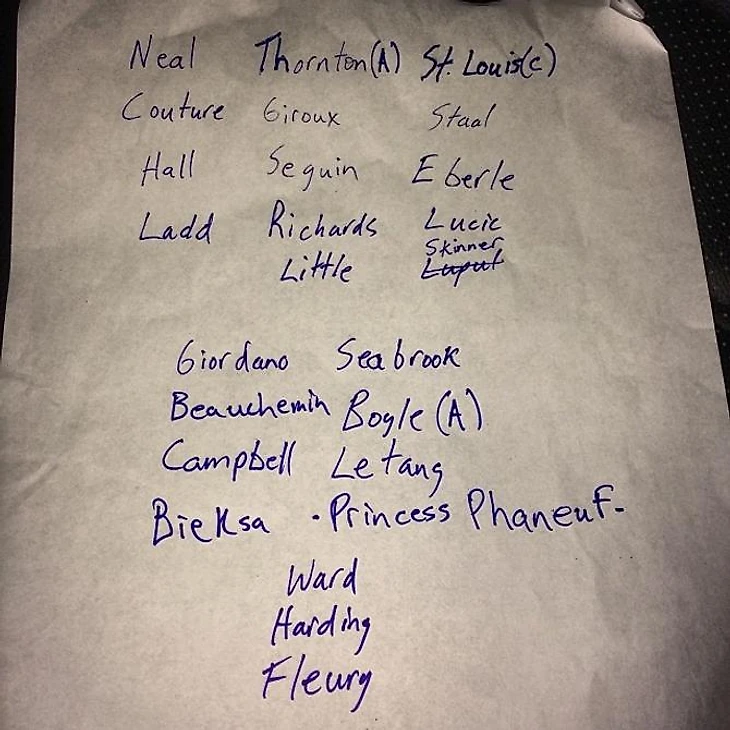 Neal Thornton(A) St. Louis(C)
Couture Giroux Staal
Hall Seguin Eberle
Ladd Richards Lucic
Skinner
Little Luput
Giordano Seabrook
Beauchemin Boyle (A)
Campbell Letang
Bieksa · Princess Phaneuf-
Ward
Harding
Fleury